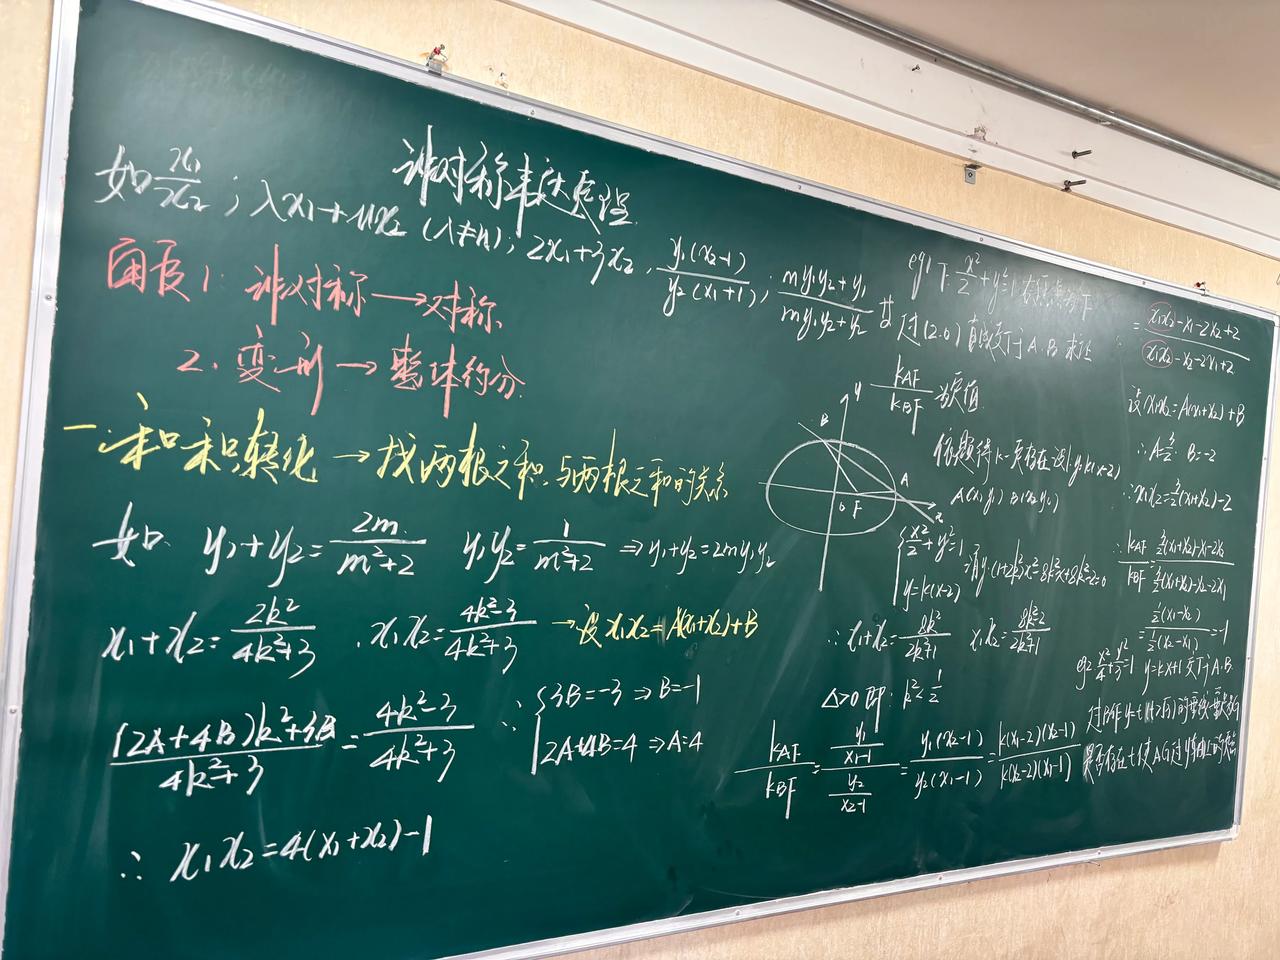 非对称表达处理
如 x₁/x₂ ; λx₁+μx₂ (λ≠μ); 2x₁+3x₂, y₁(x₂-1)/y₂(x₁+1); my₁y₂+y₁/my₁y₂+y₂ 等
1. 非对称→对称
2. 变形→整体约分
一. 和积转化→找两根之积与两根之和的关系
如 y₁+y₂=2m/m²+2 y₁y₂=1/m²+2 ⇒y₁+y₂=2my₁y₂
x₁+x₂=2k²/4k²+3 , x₁x₂=4k²-3/4k²+3 →设x₁x₂=A(x₁+x₂)+B
(2A+4B)k²+3B/4k²+3=4k²-3/4k²+3 ∴{3B=-3⇒B=-1
2A+4B=4⇒A=4
∴ x₁x₂=4(x₁+x₂)-1
eg1 T: x²/2+y²=1 右焦点为F
过(2.0)直线交于A.B 求证
kAF/kBF 为定值
依题得k一定存在设l:y=k(x-2)
A(x₁y₁) B(x₂y₂)
y
B
A
O F
x
{x²/2+y²=1
y=k(x-2)
⇒(1+2k²)x²-8k²x+8k²-2=0
∴x₁+x₂=8k²/2k²+1 x₁x₂=8k²-2/2k²+1
△>0即: k²<1/2
kAF/kBF=y₁/x₁-1/y₂/x₂-1=y₁(x₂-1)/y₂(x₁-1)=k(x₁-2)(x₂-1)/k(x₂-2)(x₁-1)
=x₁x₂-x₁-2x₂+2/x₁x₂-x₂-2x₁+2
设x₁x₂=A(x₁+x₂)+B
∴A=3/2 B=-2
∴x₁x₂=3/2(x₁+x₂)-2
∴kAF/kBF=3/2(x₁+x₂)-x₁-2x₂/3/2(x₁+x₂)-x₂-2x₁
=1/2(x₁-x₂)/1/2(x₂-x₁)=-1
eg2 x²/4+y²/3=1 y=kx+1交于A.B.
过B作y=t(t>√3)的垂线垂足为G
是否存在t使AG过y轴上的定点